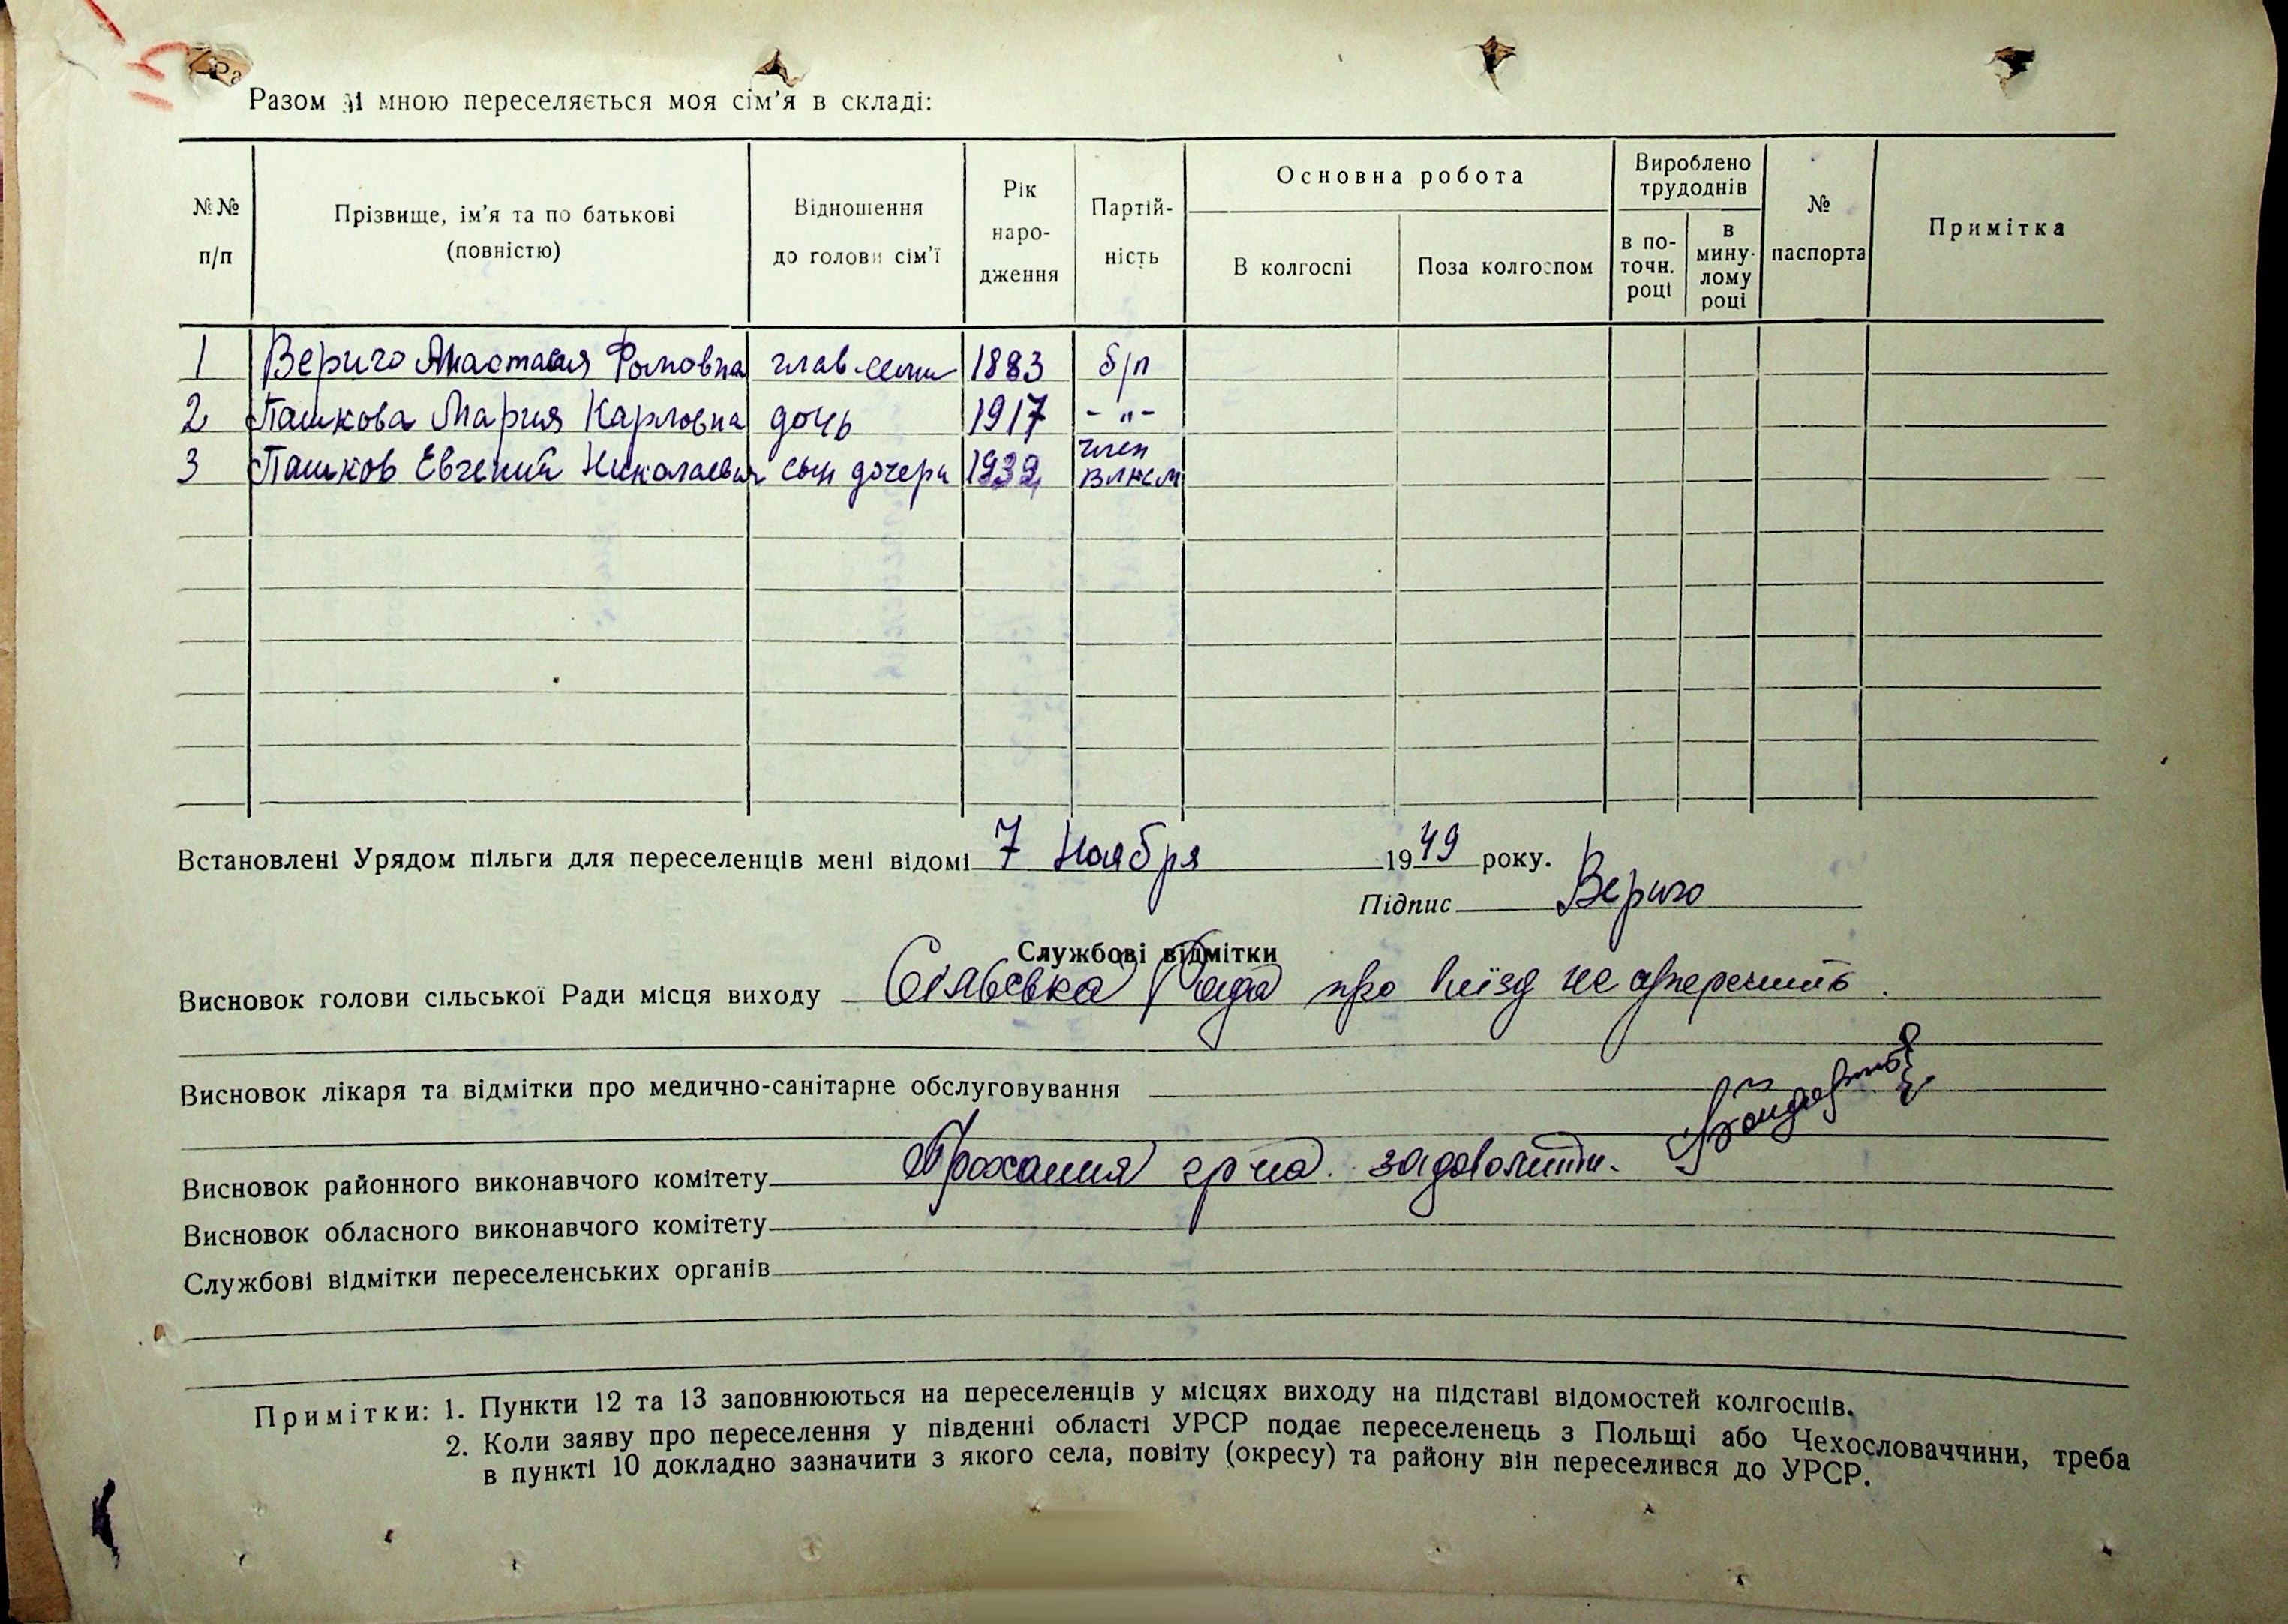 Разом зі мною переселяється моя сім'я в складі:
№№ п/п
Прізвище, ім'я та по батькові (повністю)
Відношення до голови сім'ї
Рік народження
Партійність
Основна робота
В колгоспі
Поза колгоспом
Вироблено трудоднів
в поточн. році
в минулому році
№ паспорта
Примітка
1 Вериго Анастасия Фомовна глав. семи 1883 б/п
2 Пашкова Мария Карловна дочь 1917 - " -
3 Пашков Евгений Николаевич сын дочери 1932 член ВЛКСМ
Встановлені Урядом пільги для переселенців мені відомі 7 Ноября 1949 року.
Підпис Вериго
Службові відмітки
Висновок голови сільської Ради місця виходу Рада про виїзд не заперечить.
Висновок лікаря та відмітки про медично-санітарне обслуговування
Висновок районного виконавчого комітету Прохання гр-на. задоволити.
Висновок обласного виконавчого комітету
Службові відмітки переселенських органів
Примітки: 1. Пункти 12 та 13 заповнюються на переселенців у місцях виходу на підставі відомостей колгоспів.
2. Коли заяву про переселення у південні області УРСР подає переселенець з Польщі або Чехословаччини, треба
в пункті 10 докладно зазначити з якого села, повіту (окресу) та району він переселився до УРСР.